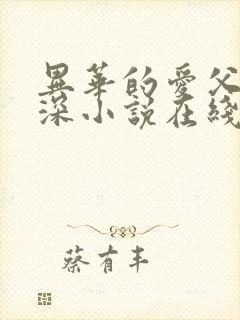 異華的愛父
深小説在綫
蔡有丰